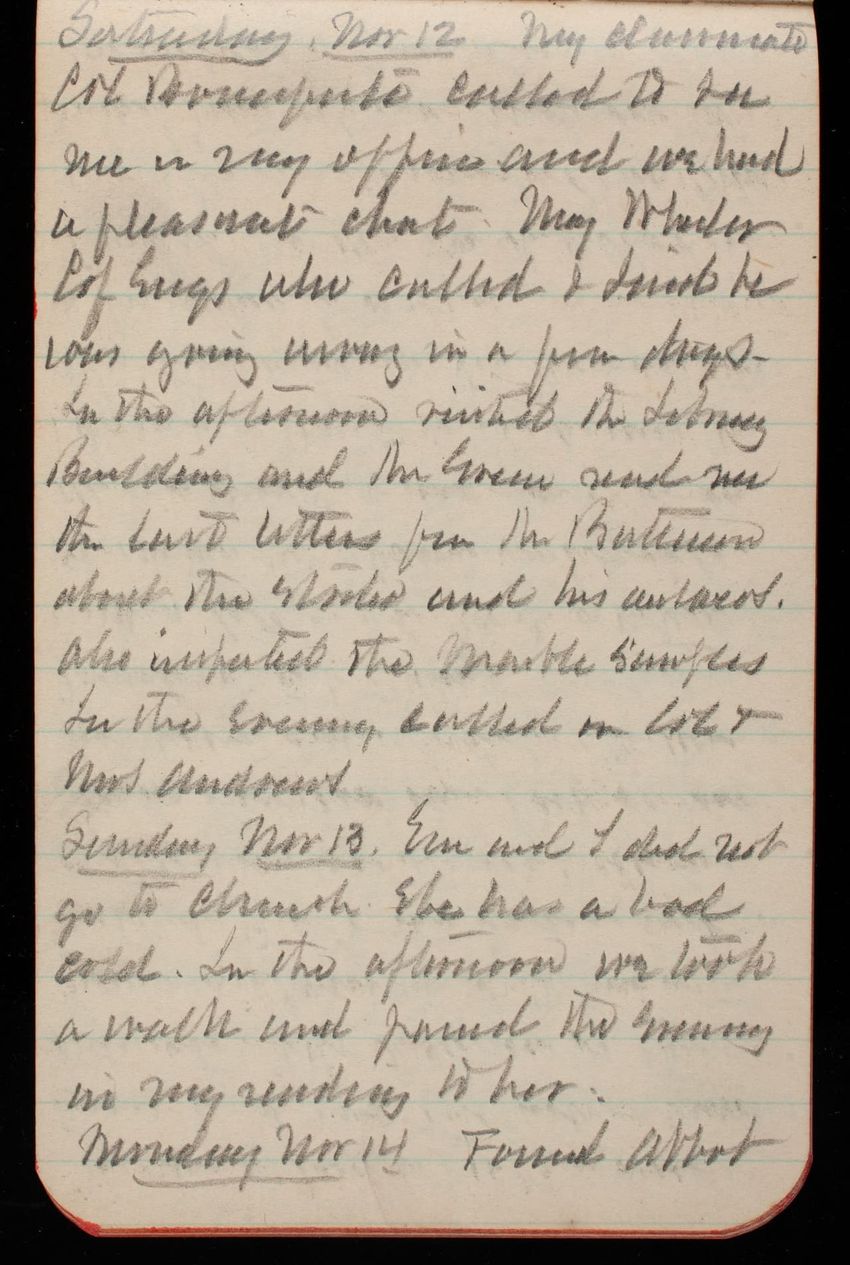 Saturday, Nov 12 My classmate
Col Bonaparte called to see
me in my office and we had
a pleasant chat. Maj Wheeler
C of Engs also called & said he
was going away in a few days.
In the afternoon visited the Library
Building and Mr Green read me
the last letters from Mr
about the and his
Also inspected the Marble Samples
In the Evening called on Col &
Mrs Andrews
Sunday, Nov 13. Em and I did not
go to Church. She has a bad
cold. In the afternoon we took
a walk and passed the Evening
in my reading to her.
Monday Nov 14 Found Abbot